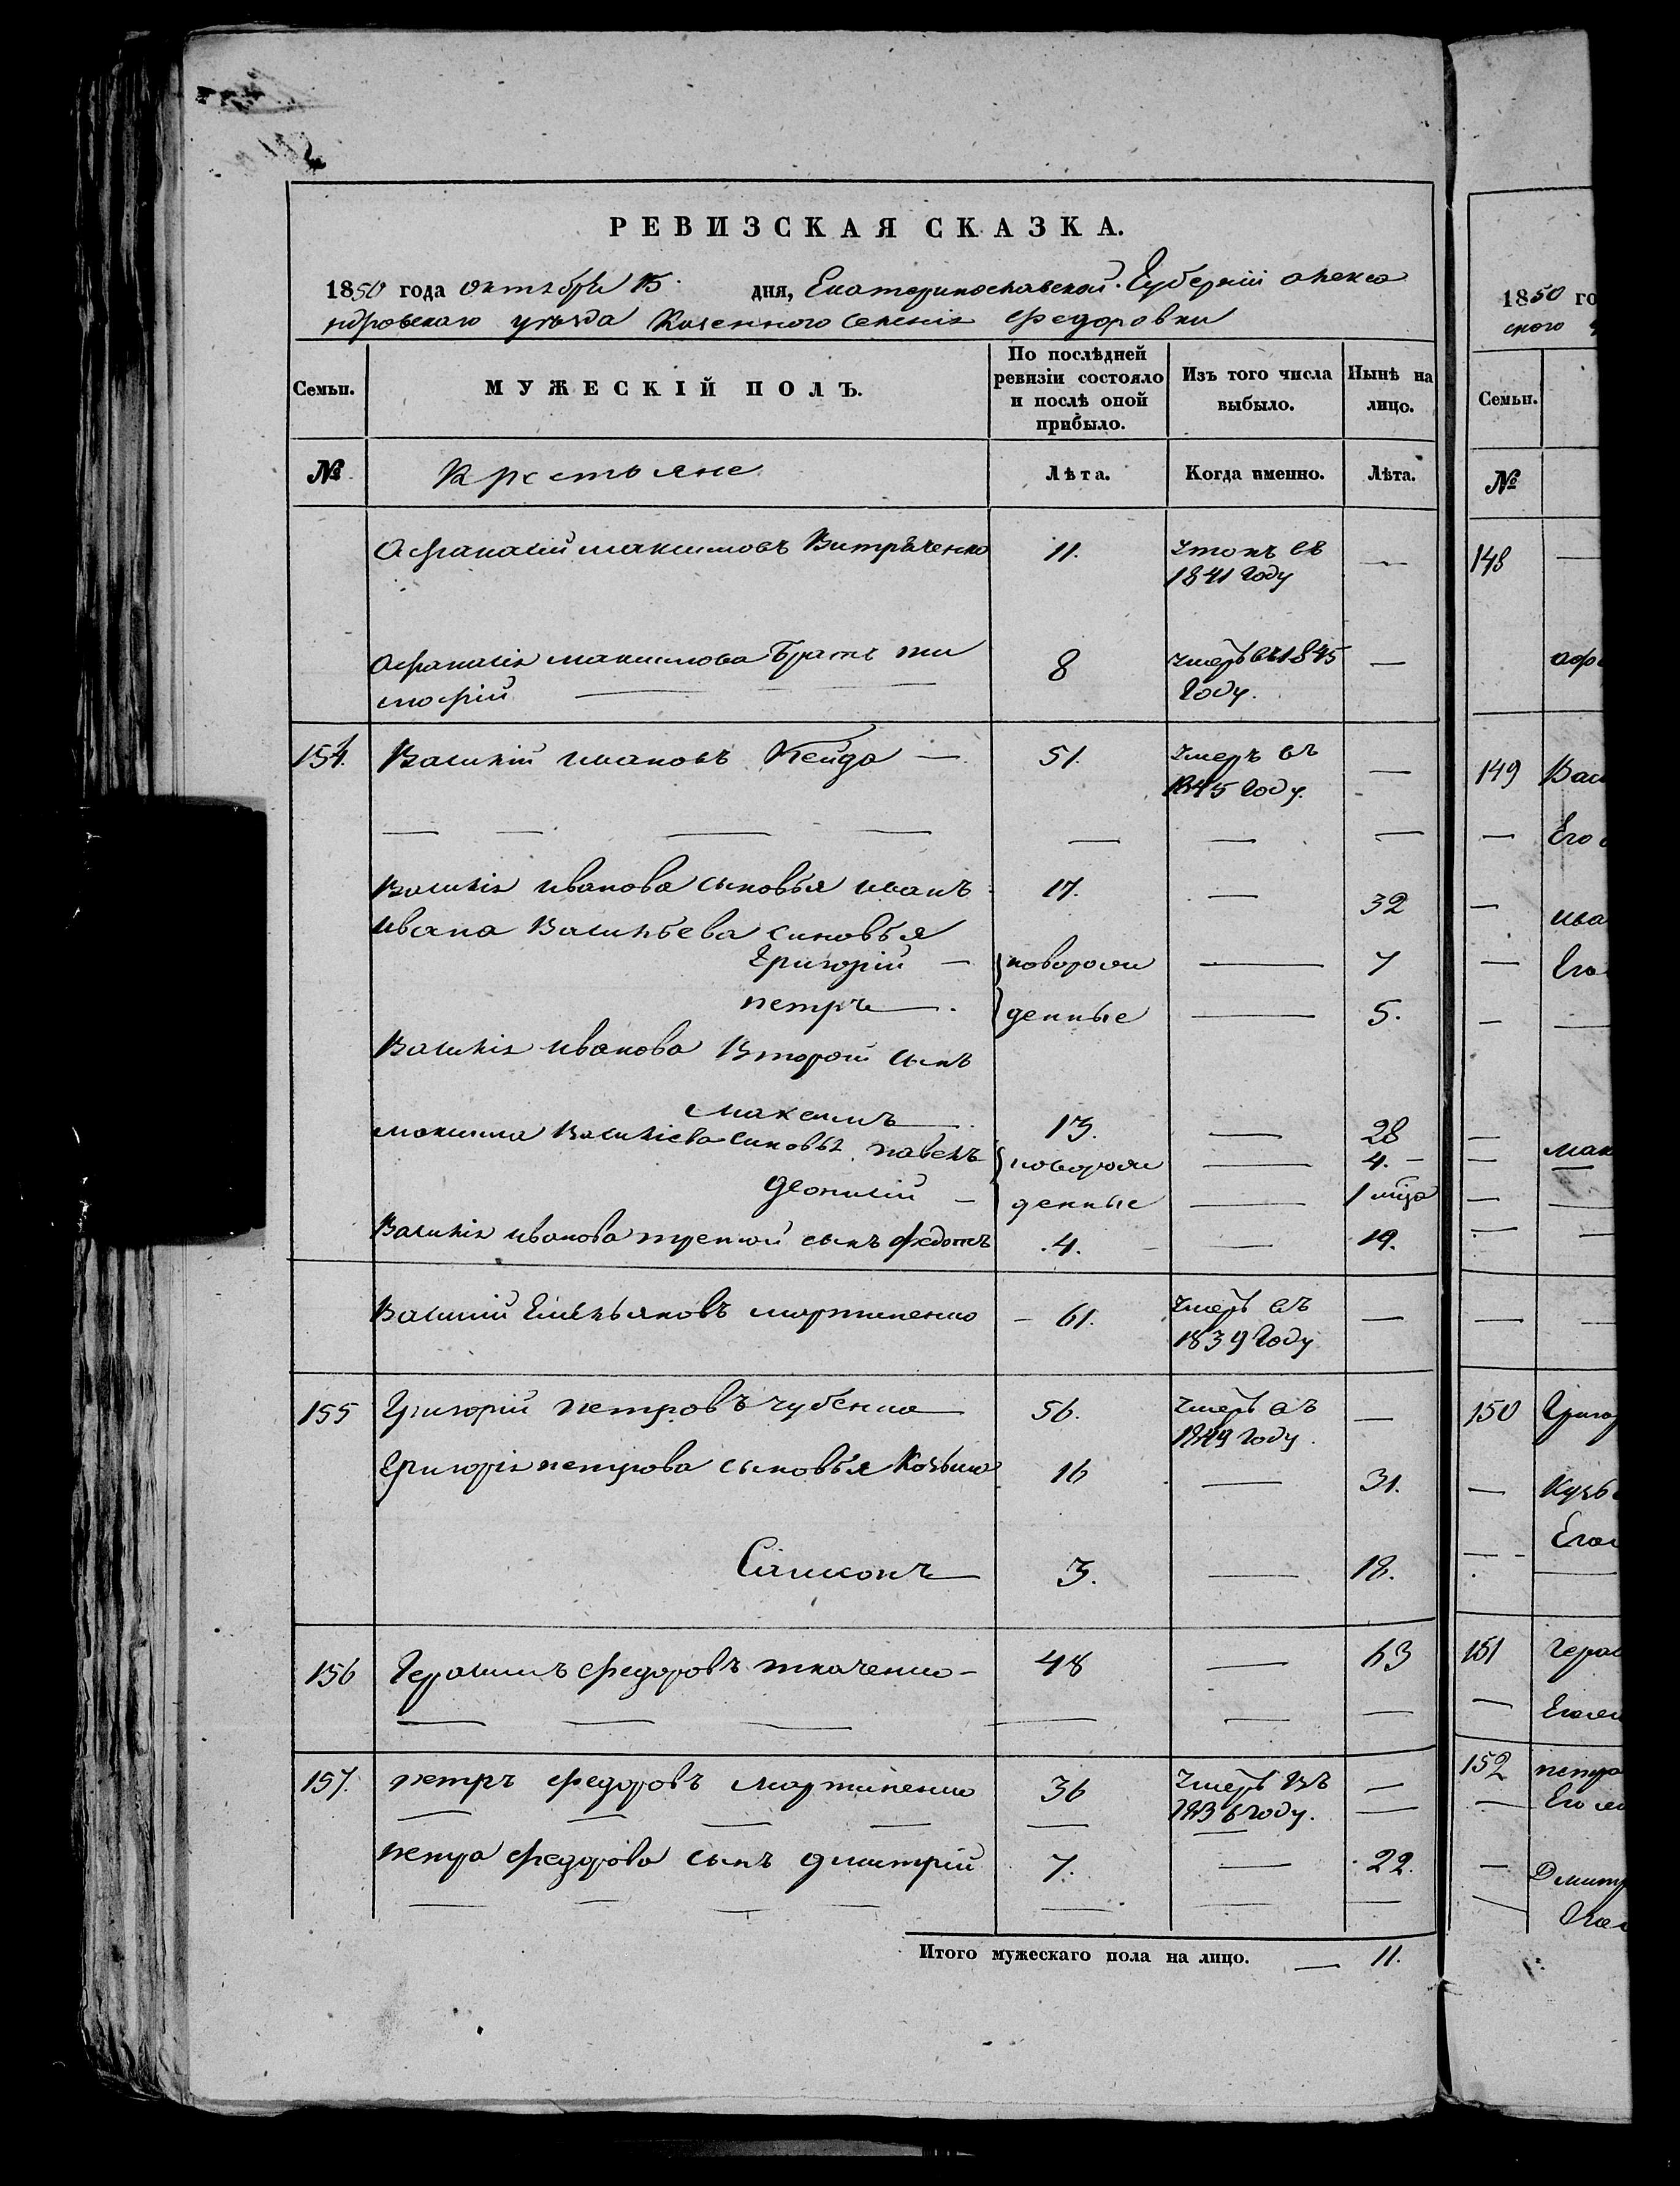 РЕВИЗСКАЯ СКАЗКА.
1850 года октября 15. дня, Екатеринославской Губернии алекса
ндровскаго уезда Казенного Селения Федоровки
Семьи. МУЖЕСКІЙ ПОЛЪ. По послѣдней ревизіи состояло и послѣ оной прибыло. Изъ того числа выбыло. Нынѣ на лицо.
№ Крестьяне Лѣта. Когда именно. Лѣта.
Афанасий максимовъ Витряченко 11. въ —
1841 году
Афанасия максимова Братъ ти 8 умеръ въ 1845 —
мофій году.
154. Василий ивановъ 51. умеръ въ —
1845 году.
Василия иванова сыновья иванъ 17. — 32
ивана Васильева синовья
Григорій — новорож — 7
петръ — денные — 5.
Василия иванова Второй сынъ
максимъ 13. — 28
максима Василиева синовья павелъ новорож — 4. —
Деонисий — денные — 1 міца
Василия иванова третий сынъ федотъ 4. — 19.
Василий Емельяновъ мартиненко — 61. умеръ въ —
1839 году
155 Григорій петровъ чубенко 56. умеръ въ —
1849 году.
Григория петрова сыновья Козьма 16 — 31.
Самсонъ 3. — 18.
156 Герасимъ федоровъ ткаченко — 48 — 63
157. петръ федоровъ мартиненко 36 умеръ въ —
1836 году.
петра федорова сынъ дмитрій 7. — 22.
Итого мужескаго пола на лицо. — 11.
1850 го
ского
Семьи.
№
148
афа
149 Вас
Его
ива
Его
мак
150 Григор
Кузь
Его
151 Герас
Его
152 петра
Его
Дмитр